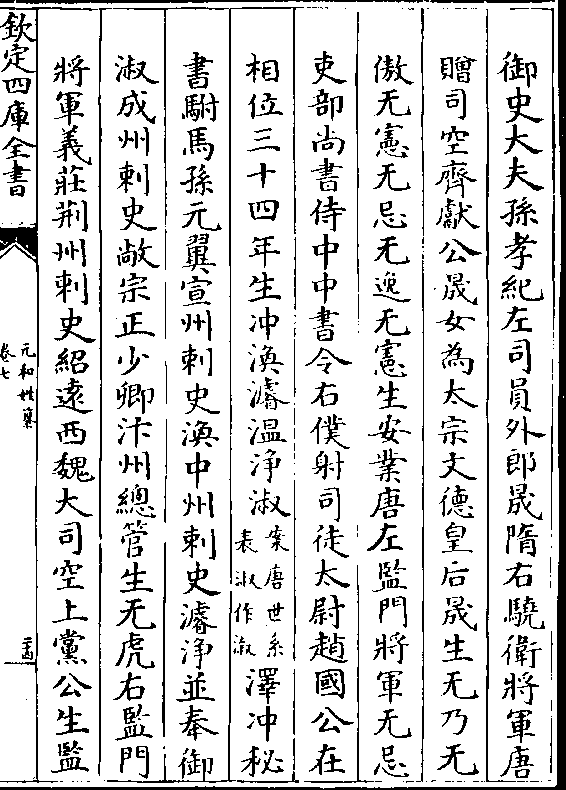 御史大夫孫孝紀左司員外郎晟隋右驍衛將軍唐
贈司空齊獻公晟女為太宗文德皇后晟生无乃无
傲无憲无忌无逸无憲生安業唐左監門將軍无忌
吏部尚書侍中中書令右僕射司徒太尉趙國公在
相位三十四年生冲渙濬溫浄淑案唐世系表淑作淑澤冲秘
書駙馬孫元翼宣州刺史渙中州刺史濬浄並奉御
淑成州刺史敞宗正少卿汴州總管生无虎右監門
將軍義莊荆州刺史紹遠西魏大司空上黨公生監
欽定四庫全書
元和姓纂
卷七